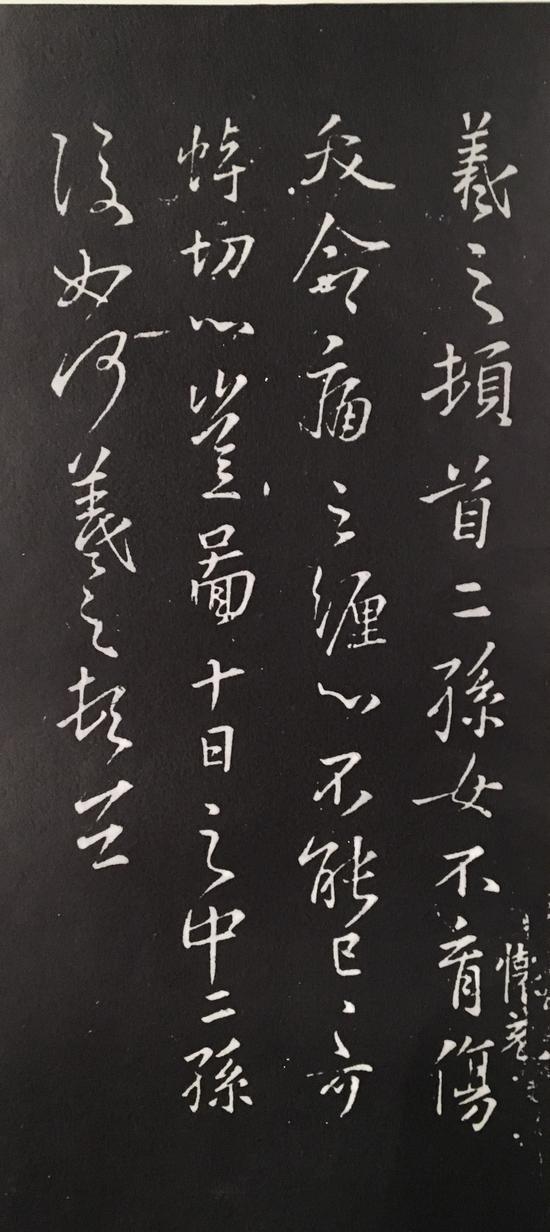 羲之頓首二孫女不育傷
夭命痛之纏心不能已々可
悼切心豈啚十日之中二孫
復如何羲之頓首